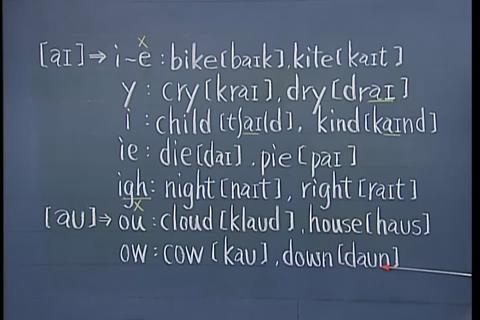 x
[aɪ]⇒i~e:bike[baɪk],kite[kaɪt]
y:cry[kraɪ],dry[draɪ]
i:child[tʃaɪld],kind[kaɪnd]
ie:die[daɪ],pie[paɪ]
igh:night[naɪt],right[raɪt]
x
[aʊ]⇒ou:cloud[klaʊd],house[haʊs]
ow:cow[kaʊ],down[daʊn]